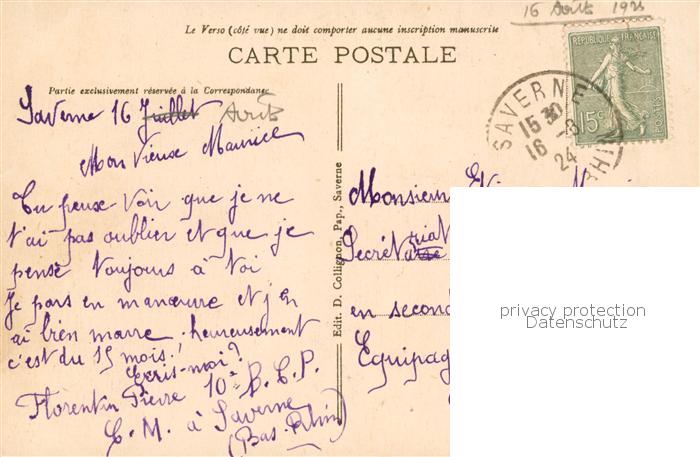 16 Août 192
Le Verso (côté vue) ne doit comporter aucune inscription manuscrite
CARTE POSTALE
Partie exclusivement réservée à la Correspondance
RÉPUBLIQUE FRANÇAISE
15c
POSTES
SAVERNE
15 30
16 -8
24
RHIN
Saverne 16 Juillet Août
Mon Vieux Maurice
Tu peux voir que je ne
t'ai pas oublier et que je
pense toujours à toi
Je pars en manœuvre et j'en
ai bien marre, heureusement
c'est du 15 mois!
Ecris-moi?
Florentin Pierre 10e B.C.P.
C. M. à Saverne
(Bas-Rhin)
Edit. D. Collignon, Pap., Saverne
Monsieur
Secrétariat
en second
Equipag
privacy protection
Datenschutz